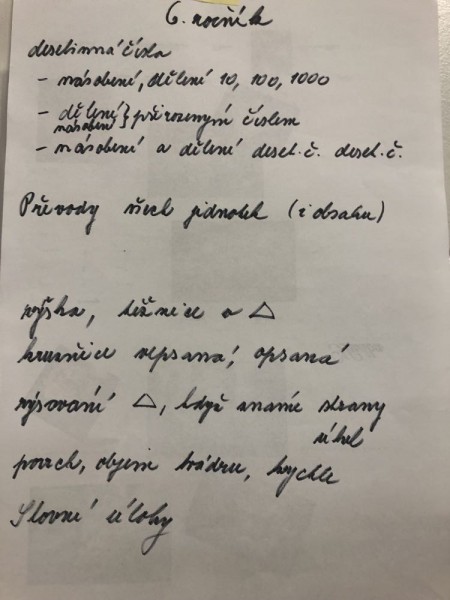 6. ročník
desetinná čísla
- násobení, dělení 10, 100, 1000
- dělení } přirozeným číslem
násobení
- násobení a dělení deset. č. deset. č.
Převody všech jednotek (i obsahu)
výška, těžnice v △
kružnice vepsaná, opsaná
rýsování △, když známe strany
úhel
povrch, objem kvádru, krychle
Slovní úlohy